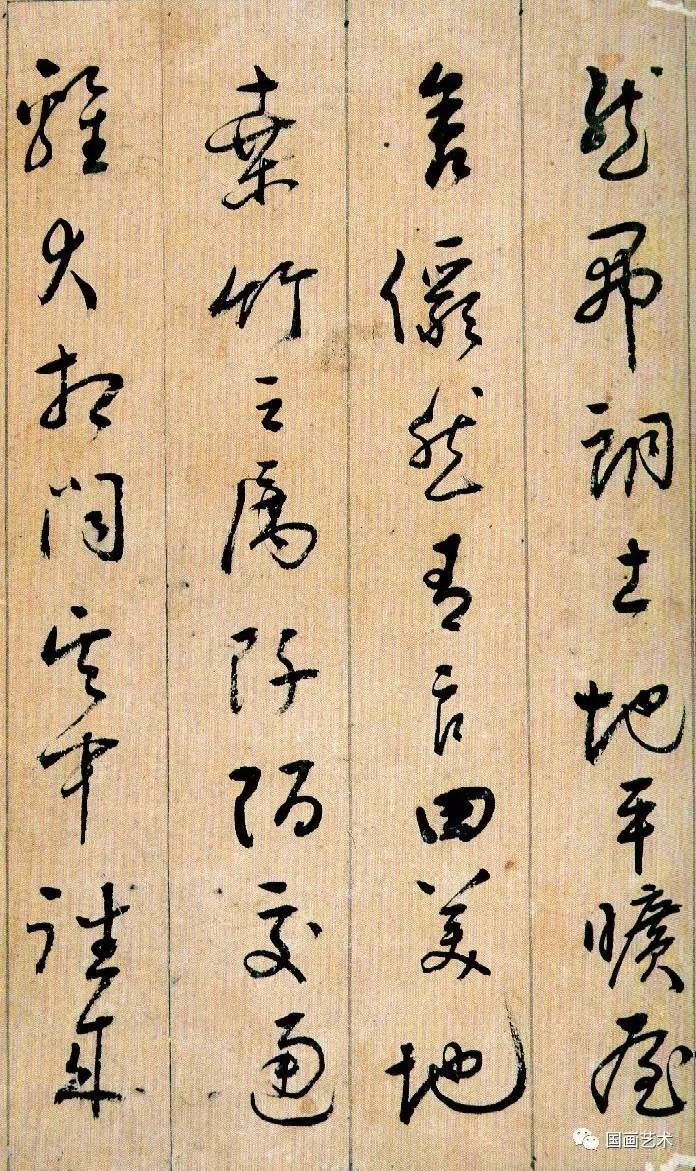 然開朗土地平曠屋
舍儼然有良田美地
桑竹之屬阡陌交通
雞犬相聞其中往來
国画艺术